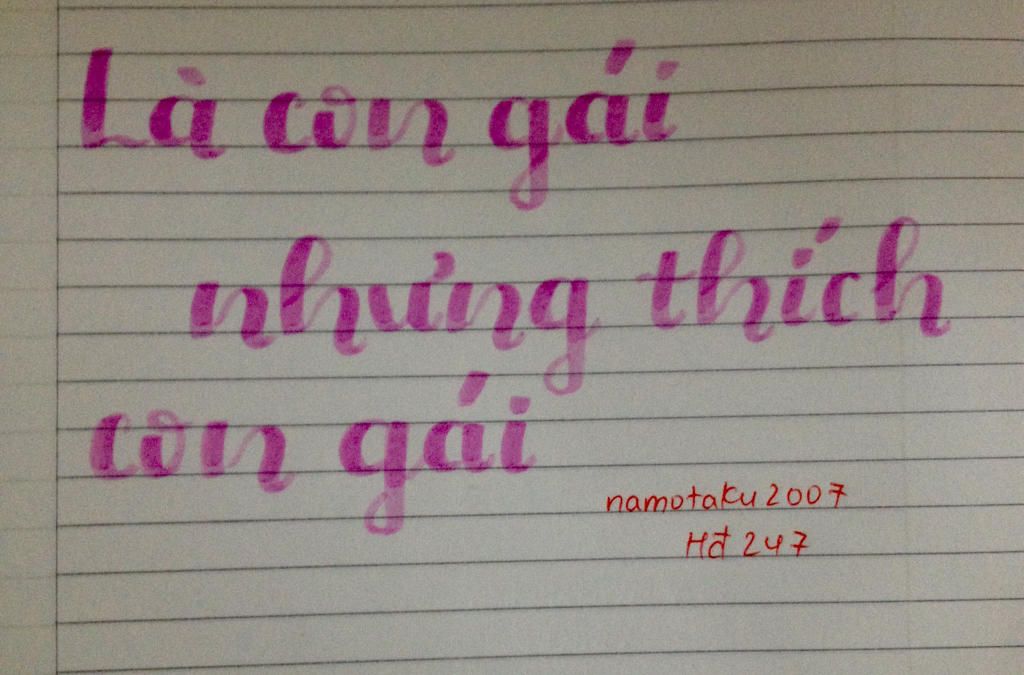 Là con gái
nhưng thích
con gái
namotaku2007
Hđ 247